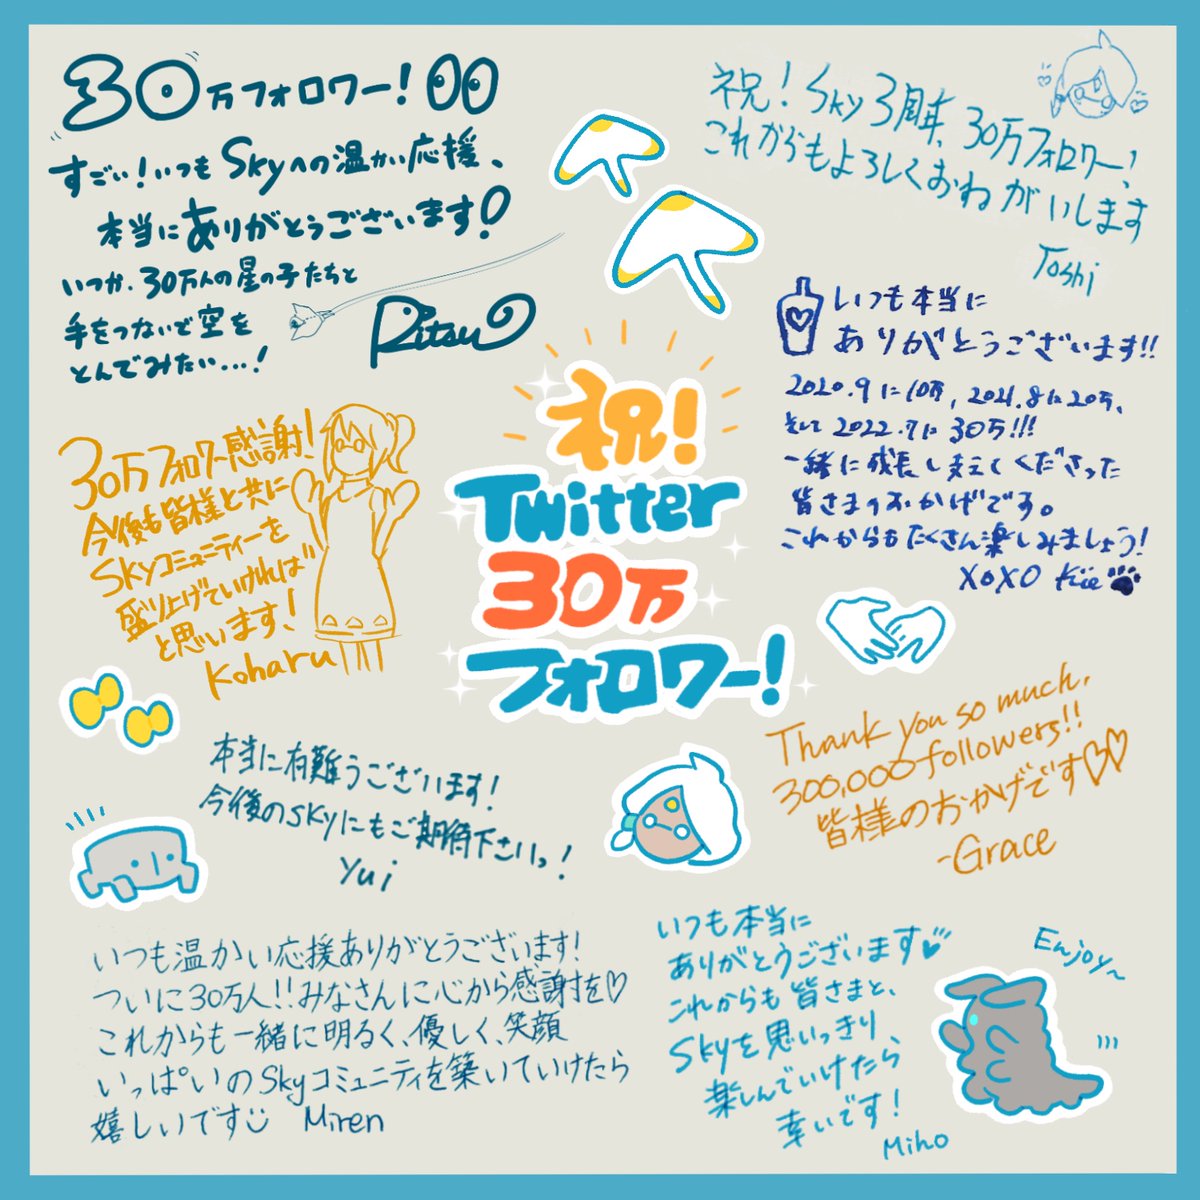 30万フォロワー!
すごい!いつもSkyへの温かい応援、
本当にありがとうございます!
いつか、30万人の星の子たちと
手をつないで空を
とんでみたい...!
Ritsu
祝!Sky3周年、30万フォロワー!
これからもよろしくおねがいします
Toshi
いつも本当に
ありがとうございます!!
2020.9に10万, 2021.8に20万、
そして2022.7に30万!!!
一緒に成長し支えてくださった
皆さまのおかげです。
これからもたくさん楽しみましょう!
XOXO Kie
30万フォロワー感謝!
今後も皆様と共に
Skyコミュニティーを
盛り上げていければ
と思います!
Koharu
祝!
Twitter
30万
フォロワー!
本当に有難うございます!
今後のskyにもご期待下さいっ!
Yui
Thank you so much,
300,000 followers!!
皆様のおかげです♡♡
-Grace
いつも温かい応援ありがとうございます!
ついに30万人!!みなさんに心から感謝を♡
これからも一緒に明るく、優しく、笑顔
いっぱいのSkyコミュニティを築いていけたら
嬉しいです
Miren
いつも本当に
ありがとうございます
これからも皆さまと、
Skyを思いっきり
楽しんでいけたら
幸いです!
Miho
Enjoy~